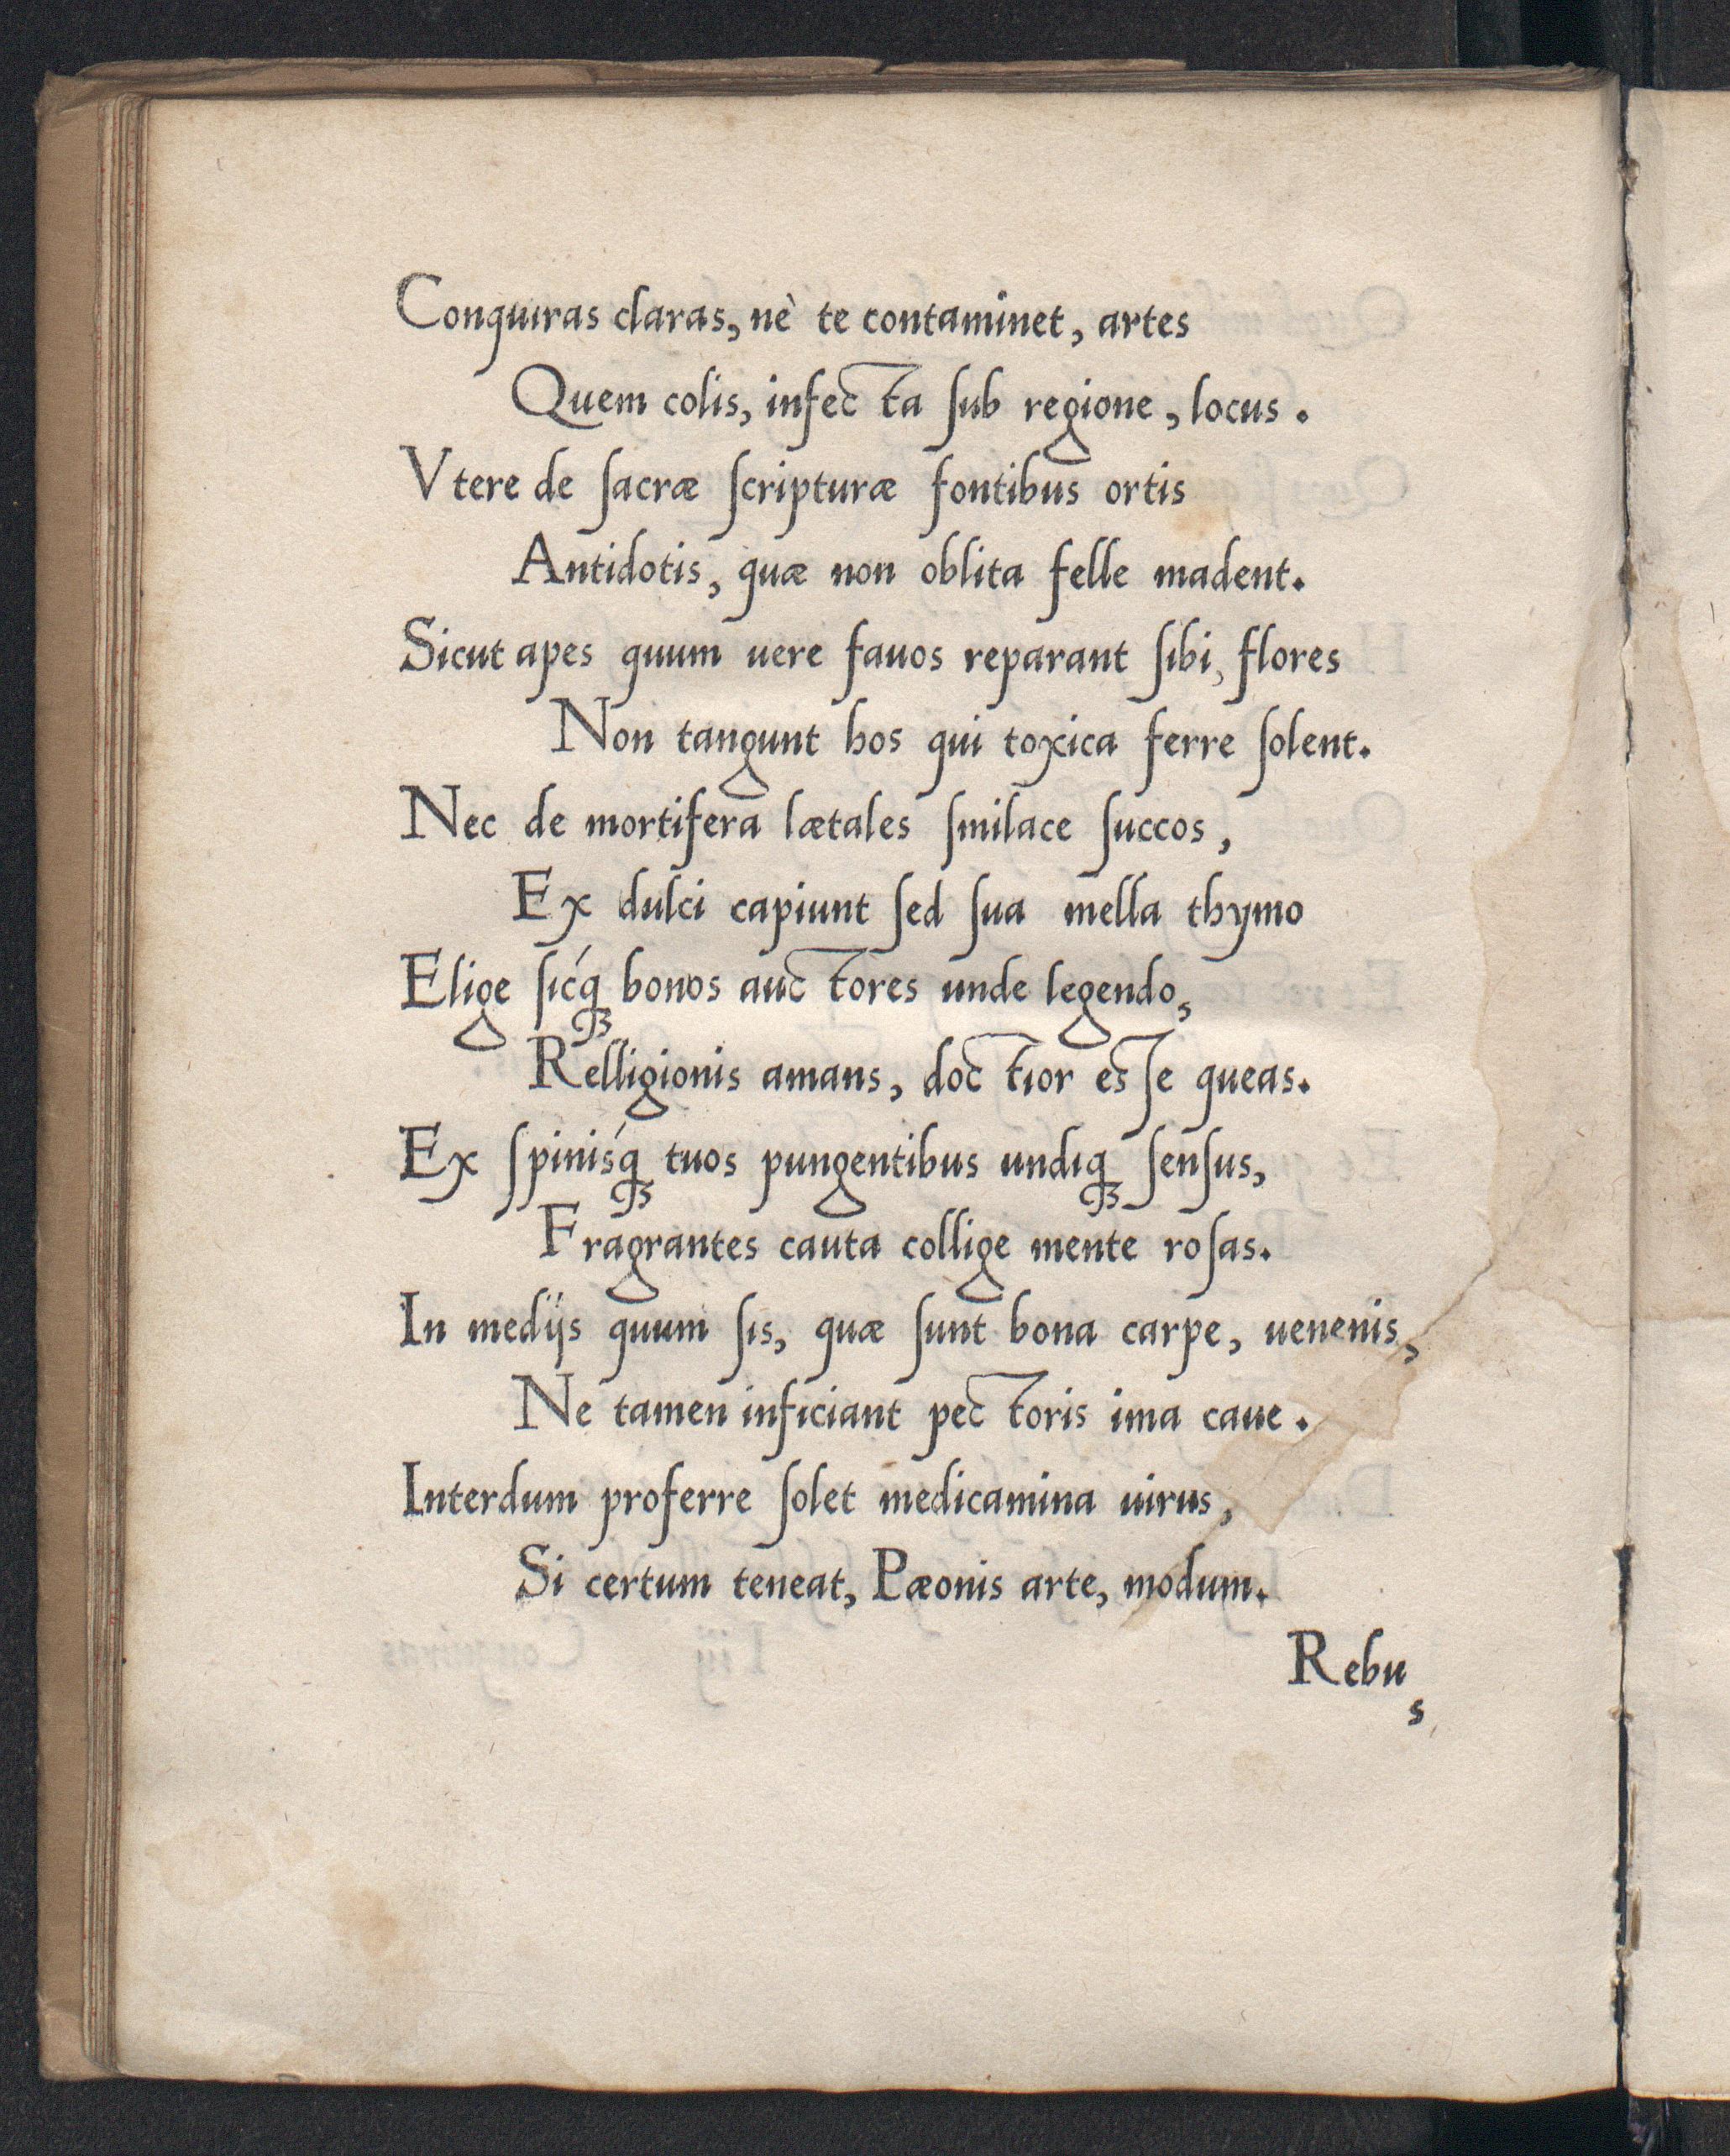 Conquiras claras, nè te contaminet, artes
Quem colis, infecta ſub regione, locus.
Vtere de ſacræ ſcripturæ fontibus ortis
Antidotis, quæ non oblita felle madent.
Sicut apes quum uere fauos reparant ſibi, flores
Non tangunt hos qui toxica ferre ſolent.
Nec de mortifera lætales ſmilace ſuccos,
Ex dulci capiunt ſed ſua mella thymo
Elige ſicq́ꝫ bonos auctores unde legendo,
Relligionis amans, doctior esſe queas.
Ex ſpinisq́ꝫ tuos pungentibus undiqꝫ ſenſus,
Fragrantes cauta collige mente roſas.
In medijs quum ſis, quæ ſunt bona carpe, uenenis,
Ne tamen inficiant pectoris ima caue.
Interdum proferre ſolet medicamina uirus,
Si certum teneat, Pæonis arte, modum.
Rebus